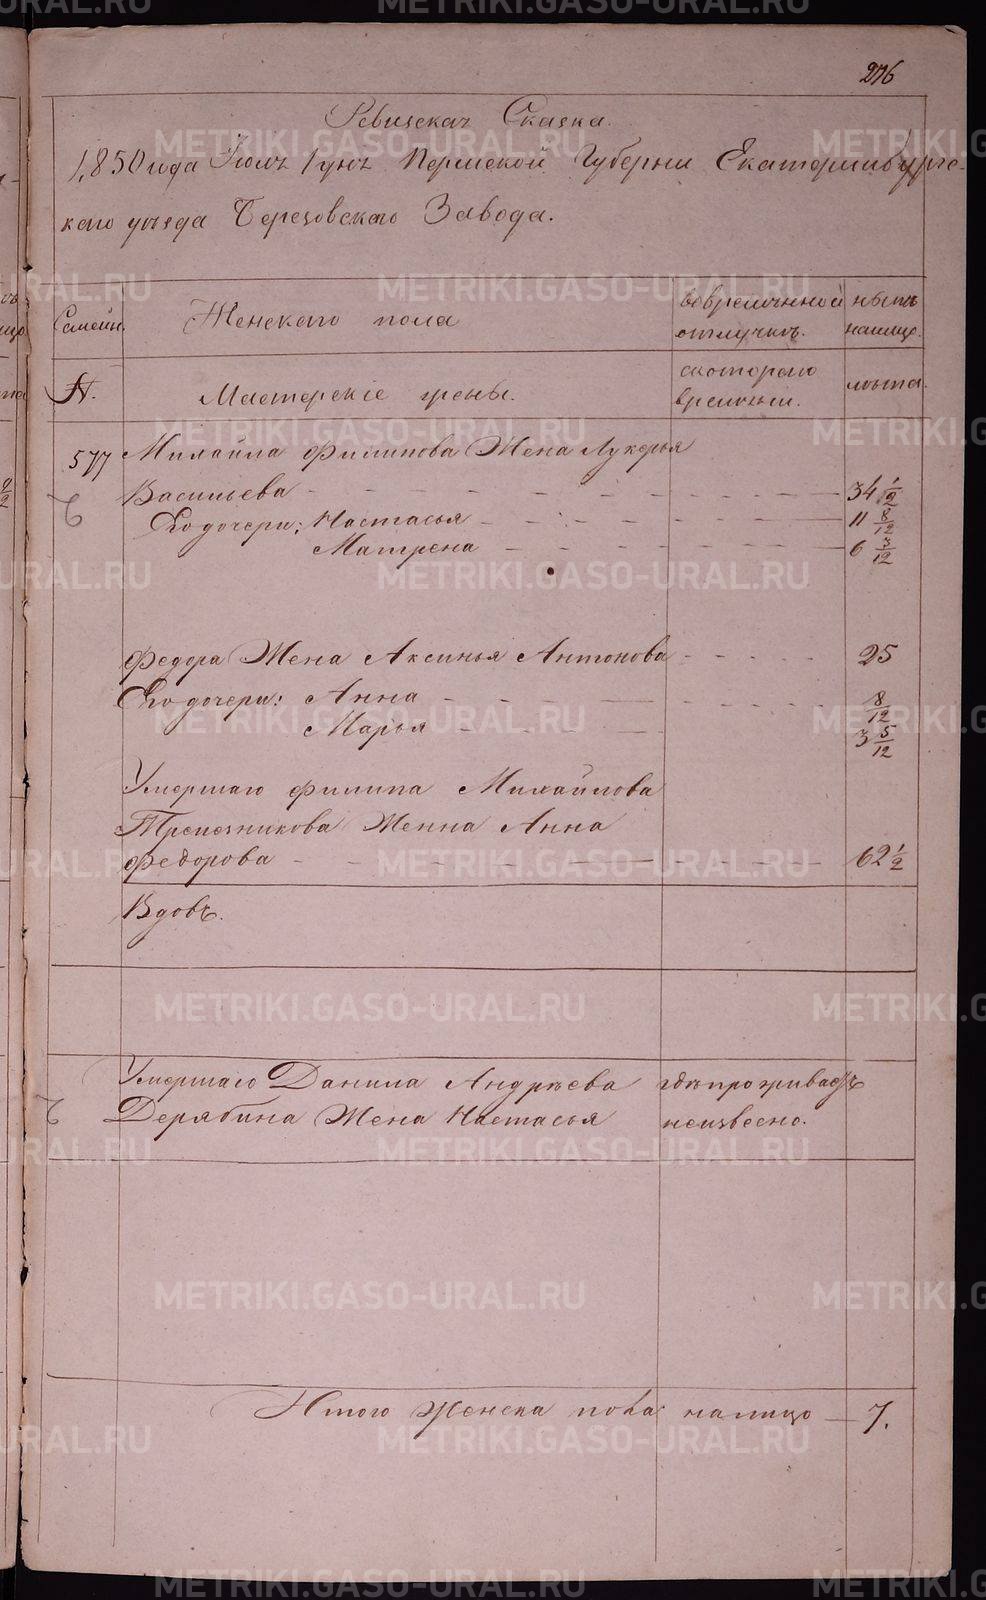 276
Ревизская Сказка.
1850 года Июля 1 дня Пермской Губернии Екатеринбургс-
каго уезда Березовскаго Завода.
Семейн. Женскаго пола вовременной отлучке. ныне налицо.
№. Мастерскіе жены. скотораго времении. лета.
577 Михайла Филипова Жена Лукерья
Васильева 34 1/2
Его дочери: Настасья 11 8/12
Матрена 6 3/12
Федора Жена Аксинья Антонова 25
Его дочери: Анна 8/12
Марья 3 5/12
Умершаго Филипа Михайлова
Жена Анна
Федорова 62 1/2
Вдовъ.
Умершаго Данила Андрѣева где проживаетъ
Дерябина Жена Настасья неизвесно.
Итого Женска пола налицо 7.
METRIKI.GASO-URAL.RU